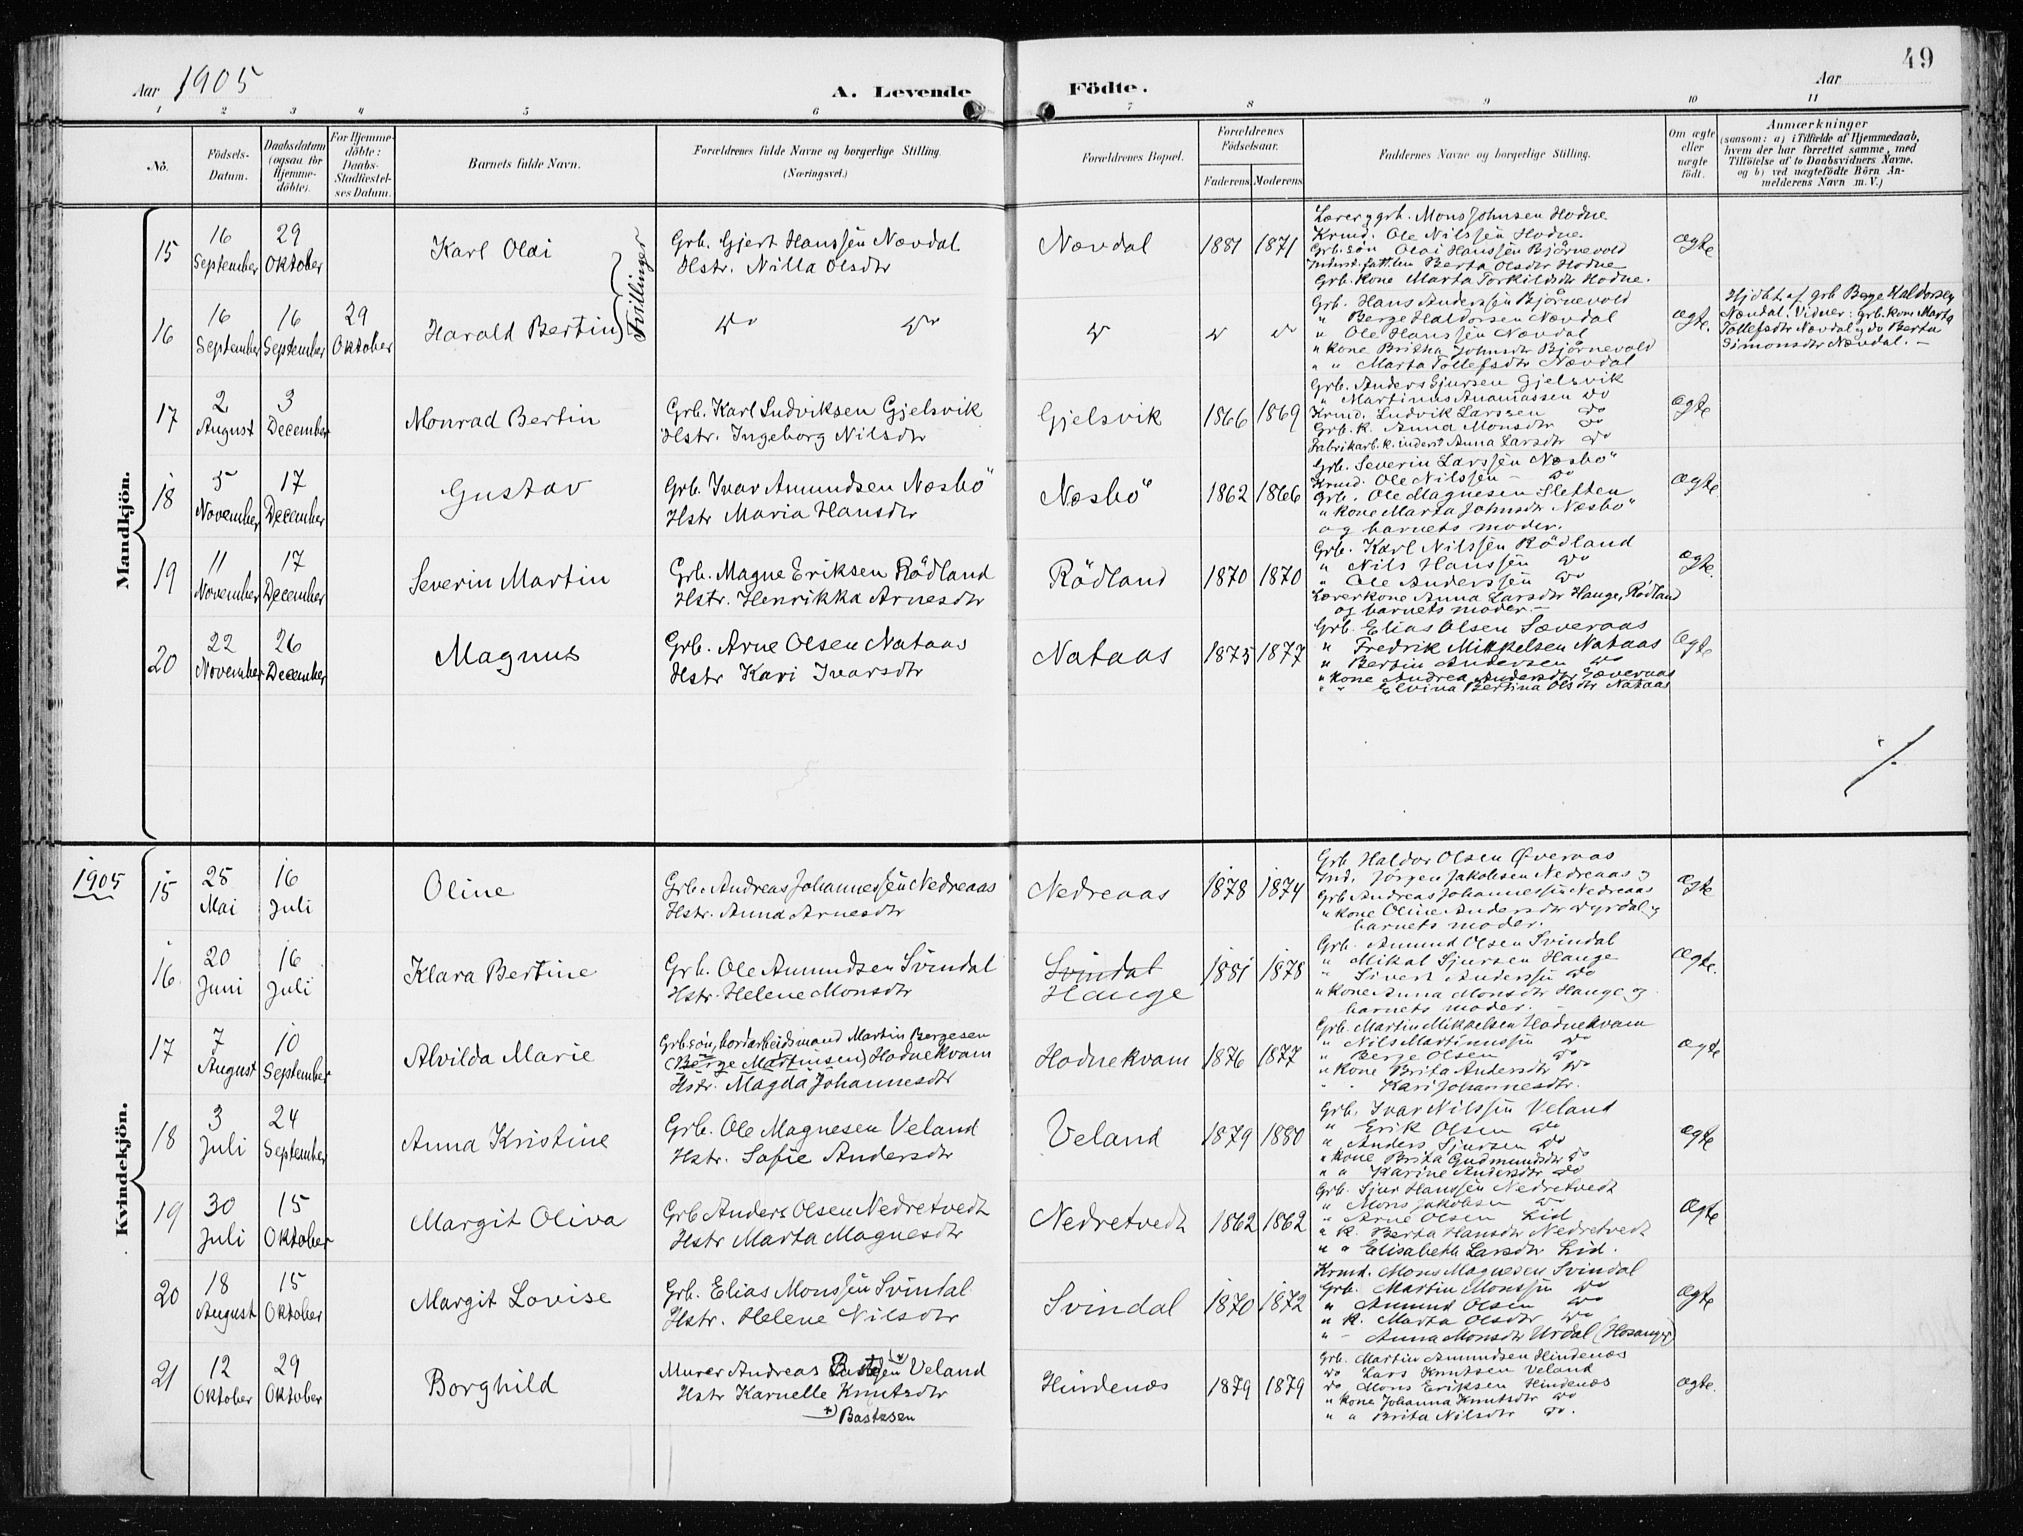 49
Aar 1905
A. Levende
Födte.
Aar
1 2 3 4 5 6 7 8 9 10 11
No.
Födsels-Datum.
Daabsdatum (ogsaa for Hjemme-döbte).
For Hjemme-döbte: Daabs-Stadfæstel-ses Datum.
Barnets fulde Navn.
Forældrenes fulde Navne og borgerlige Stilling.
(Næringsvei.)
Forældrenes Bopæl.
Forældrenes Födselsaar.
Faderens. Moderens.
Faddernes Navne og borgerlige Stilling.
Om ægte eller uægte födt.
Anmærkninger
(saasom: a) i Tilfælde af Hjemmedaab,
hvem der har forrettet samme, med
Tilföielse af to Daabsvidners Navne,
og b) ved uægtefödte Börn An-
melderens Navn m. V.)
Mandkjön.
15
16 September
29 Oktober
Karl Olai
Tvillinger
Grb. Gjert Hanssen Nævdal
Hstr. Nilla Olsdtr
Nævdal
1881 1871
Lærer og grb. Mons Johnsen Hodne
Krmd. Ole Nilssen Hodne.
Grb. søn Olai Hanssen Bjørnevold
Berta Olsdtr Hodne
Grb. kone Marta Torkildsdtr Hodne.
ægte
16
16 September
16 September
29 Oktober
Harald Bertin
do do
do
do do
Grb. Hans Anderssen Bjørnevold
" Berge Haldorsen Nævdal
" Ole Hanssen Nævdal
" kone Britha Johnsdtr Bjørnevold
" " Marta Tollefsdtr Nævdal
ægte.
Hjdbt. af grb Berge Haldorsen
Nævdal. Vidner: Grb. kone Marta
Tollefsdtr Nævdal og do Berta
Simonsdtr Nævdal. -
17
2 August
3 December
Monrad Bertin
Grb. Karl Ludviksen Gjelsvik
Hstr. Ingeborg Nilsdtr
Gjelsvik
1866 1869
Grb. Anders Sjursen Gjelsvik
" Martinus Ananiassen do
Krmd. Ludvik Larssen do
Grb. k. Anna Monsdtr do
Fabrikarb. k. inderst Anna Larsdtr do
ægte
18
5 November
17 December
Gustav
Grb. Ivar Amundsen Næsbö
Hstr Maria Hansdtr
Næsbö
1862 1866
Grb. Severin Larssen Næsbö
Krmd. Ole Nilssen - do
Grb. Ole Magnesen Sletten
" kone Marta Johnsdtr Næsbö
og barnets moder.
ægte
19
11 November
17 December
Severin Martin
Grb. Magne Eriksen Rödland
Hstr. Henrikka Arnesdtr
Rödland
1870 1870
Grb. Karl Nilssen Rödland
" Nils Hanssen do
" Ole Anderssen do
Lærerkone Anna Larsdtr Hauge, Rödland
og barnets moder. -
ægte.
20
22 November
26 December
Magnus
Grb. Arne Olsen Nataas
Hstr Kari Ivarsdtr
Nataas
1875 1877
Grb. Elias Olsen Sæveraas
" Fredrik Mikkelsen Nataas
" Bertin Andersen do
" kone Andrea Andersdtr Sæveraas
" " Elvina Bertina Olsdtr Nataas
ægte
Kvindekjön.
1905
15
25 Mai
16 Juli
Oline
Grb. Andreas Johannessen Nedreaas
Hstr. Anna Arnesdtr
Nedreaas
1878 1874
Grb Haldor Olsen Øveraas
Jörgen Jakobsen Nedreaas og
Grb Andreas Johannessen Nedreaas
" kone Oline Andersdtr Dyrdal og
barnets moder.
ægte
16
20 Juni
16 Juli
Klara Bertine
Grb. Ole Amundsen Svindal
Hstr. Helene Monsdtr
Svindal
Hauge
1881 1878
Grb. Amund Olsen Svindal
" Mikal Sjursen Hauge
" Sivert Anderssen do
" kone Anna Monsdtr Hauge og
barnets moder. -
ægte.
17
7 August
10 September
Alvilda Marie
Grb. søn, jordarbeidsmand Martin Bergesen
(Berge Martinsen) Hodnekvam
Hstr. Magda Johannesdtr
Hodnekvam
1876 1877
Grb. Martin Mikkelsen Hodnekvam
" Nils Martinussen do
" Berge Olsen do
" kone Brita Andersdtr do
" " Kari Johannesdtr.
ægte
18
3 Juli
24 September
Anna Kristine
Grb. Ole Magnesen Veland
Hstr. Sofie Andersdtr
Veland
1879 1880
Grb. Ivar Nilssen Veland
" Erik Olsen do
" Anders Sjursen do
" kone Brita Gudmundsdtr do
" " Karine Andersdtr do
ægte
19
30 Juli
15 Oktober
Margit Oliva
Grb Anders Olsen Nedretvedt
Hstr Marta Magnesdtr
Nedretvedt
1862 1862
Grb. Sjur Hanssen Nedretvedt
" Mons Jakobsen do
" Arne Olsen Lid
" k. Berta Hansdtr Nedretvedt
" " Elisabeth Larsdtr Lid.
ægte
20
18 August
15 Oktober
Margit Lovise
Grb. Elias Monssen Svindal
Hstr. Helene Nilsdtr
Svindal
1870 1872
Krmd. Mons Magnesen Svindal
Grb. Martin Monssen do
" Amund Olsen do
" k. Marta Olsdtr do
" - Anna Monsdtr Urdal (Hosanger)
ægte
21
12 Oktober
29 Oktober
Borghild
Murer Andreas *) Veland
Hstr Karnelle Knutsdtr
*) Bastesen
Hindenæs
1879 1879
Grb. Martin Amundsen Hindenæs
do Lars Knutsen Veland
do Mons Eriksen Hindenæs
" kone Johanna Knutsdtr do
" " Brita Nilsdtr do.
ægte.